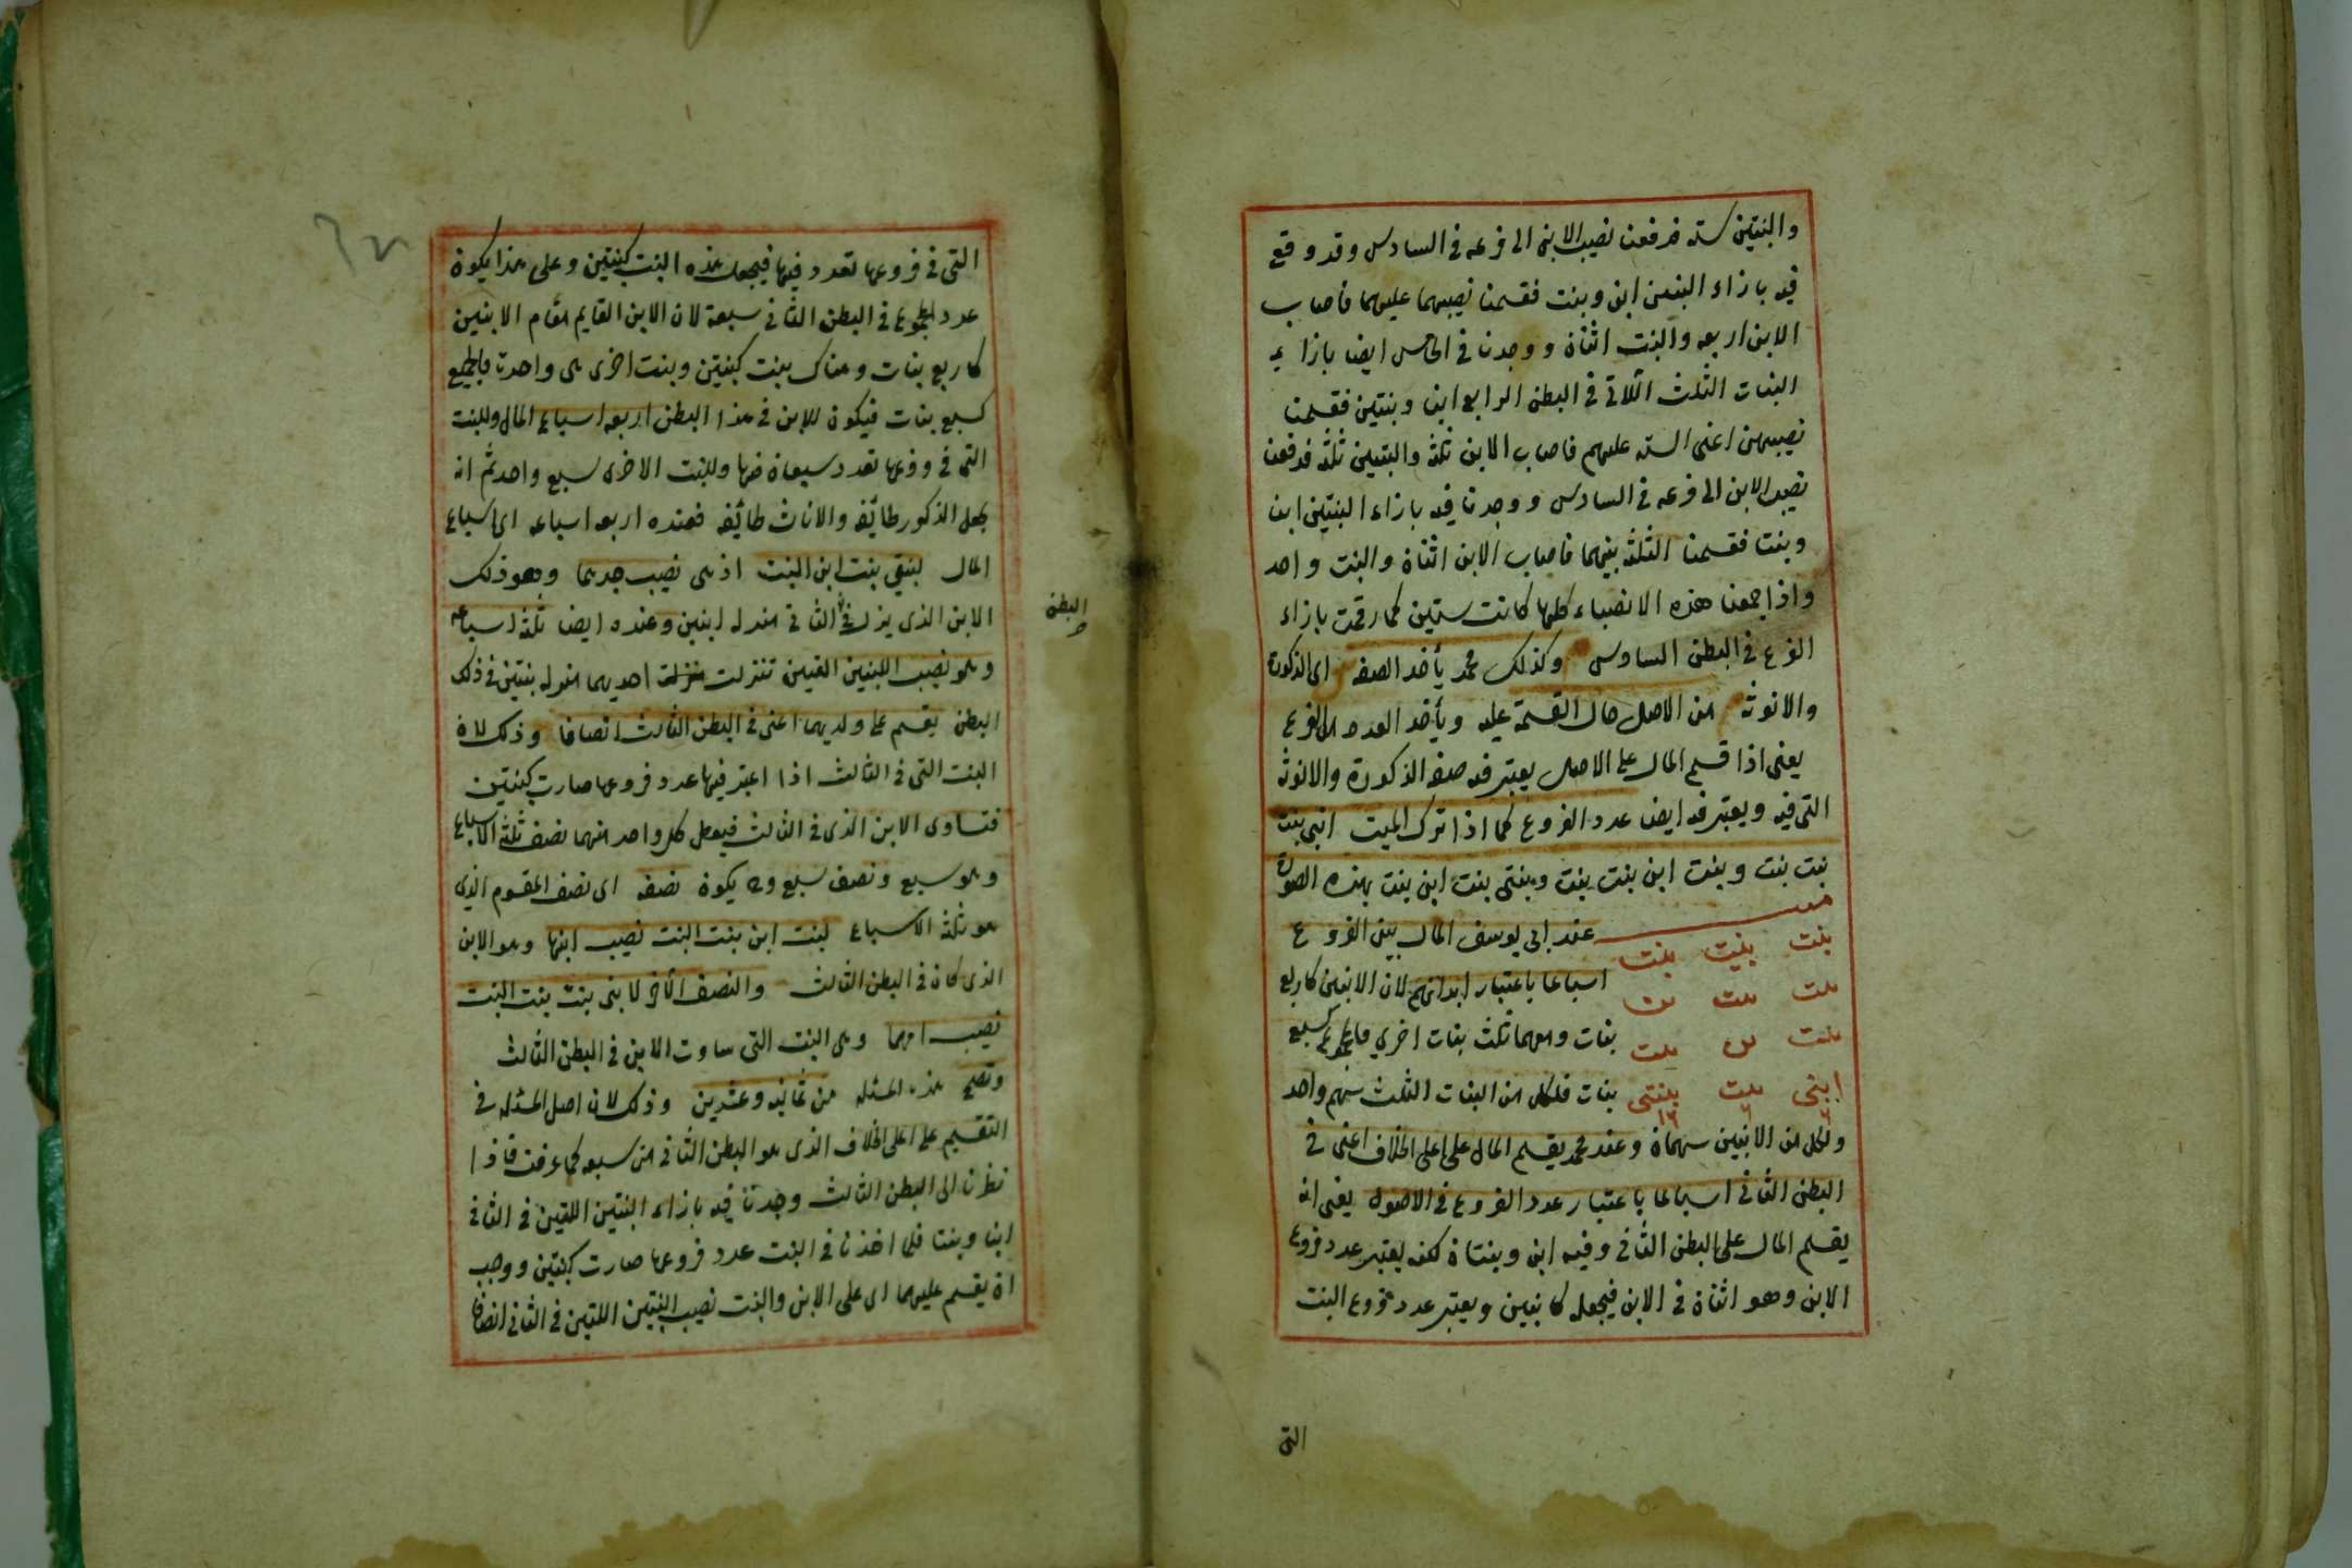 والبنتين ستة فدفعنا نصيب الابن الى فرعه فى السادس وقد وقع
فيه بازاء البنتين ابن وبنت فقسمنا نصيبهما عليهما فاصاب
الابن اربعه والبنت اثنان ووجدنا فى الخامس ايضا بازاء
البنات الثلث اللاتى فى البطن الرابع ابنا وبنتين فقسمنا
نصيبهن اعنى الستة عليهم فاصاب الابن ثلثة والبنتين ثلثة فدفعنا
نصيب الابن الى فرعه فى السادس ووجدنا فيه بازاء البنتين ابن
وبنت فقسمنا الثلثة بينهما فاصاب الابن اثنان والبنت واحد
واذا جمعنا هذه الانصباء كلها كانت ستين كما رقمت بازاء
الفرع فى البطن السادس وكذلك محمد يأخذ الصفه اى الذكورة
والانوثه من الاصل حال القسمة عليه ويأخذ العدد من الفروع
يعنى اذا قسم المال على الاصل يعتبر فيه صفة الذكورة والانوثة
التى فيه ويعتبر فيه ايضا عدد الفروع كما اذا ترك الميت ابنى بنت
بنت بنت وبنت ابن بنت بنت وبنتى بنت ابن بنت بهذه الصورة
عند ابى يوسف المال بين الفروع
بنت بنت بنت
اسباعا باعتبار ابدانهم لان الابنين كاربع
بنت بنت ابن
بنات ومعهما ثلث بنات اخرى فالمجموع كسبع
بنت ابن بنت
بنات فلكل من البنات الثلث سهم واحد
ابنى بنت بنتى
٦ ٦ ١٦
ولكل من الابنين سهمان وعند محمد يقسم المال على اعلى الخلاف اعنى فى
البطن الثانى اسباعا باعتبار عدد الفروع فى الاصول يعنى انه
يقسم المال على البطن الثانى وفيه ابن وبنتان لكنه يعتبر عدد فروع
الابن وهو اثنان فى الابن فيجعله كابنين ويعتبر عدد فروع البنت
التى
التى فى فروعها تعدد فيها فيجعل هذه البنت كبنتين وعلى هذا يكون
عدد المجموع فى البطن الثانى سبعة لان الابن القايم مقام الابنين
كاربع بنات وهناك بنت كبنتين وبنت اخرى هى واحدة فالجميع
كسبع بنات فيكون للابن فى هذا البطن اربعه اسباع المال وللبنت
التى فى فروعها تعدد سبعان منها وللبنت الاخرى سبع واحد ثم انه
يجعل الذكور طائفه والاناث طائفه فعنده اربعه اسباعه اى اسباع
المال لبنتى بنت ابن البنت اذ هى نصيب جدهما وهو ذلك
الابن الذى ينزل فى الثانى منزله ابنين وعنده ايضا ثلثة اسباعه
البطن
وهو نصيب البنتين اللتين تنزلت منزلت احديهما منزله بنتين فى ذلك
البطن يقسم على ولديهما اعنى فى البطن الثالث انصافا وذلك لان
البنت التى فى الثالث اذا اعتبر فيها عدد فروعها صارت كبنتين
فتساوى الابن الذى فى الثالث فيعطى كل واحد منهما نصف ثلثة الاسباع
وهو سبع ونصف سبع وح يكون نصفه اى نصف المقسوم الذى
هو ثلثة الاسباع لبنت ابن بنت البنت نصيب ابنها وهو الابن
الذى كان فى البطن الثالث والنصف الآخر لابنى بنت بنت البنت
نصيب امهما وهى البنت التى ساوت الابن فى البطن الثالث
وتصح هذه المسئلة من ثمانيه وعشرين وذلك لان اصل المسئله فى
التقسيم على اعلى الخلاف الذى هو البطن الثانى من سبعه كما عرفت فاذا
نظرنا الى البطن الثالث وجدنا فيه بازاء البنتين اللتين فى الثانى
ابنا وبنتا فلما اخذنا فى البنت عدد فروعها صارت كبنتين ووجب
ان يقسم عليهما اى على الابن والبنت نصيب البنتين اللتين فى الثانى انصافا